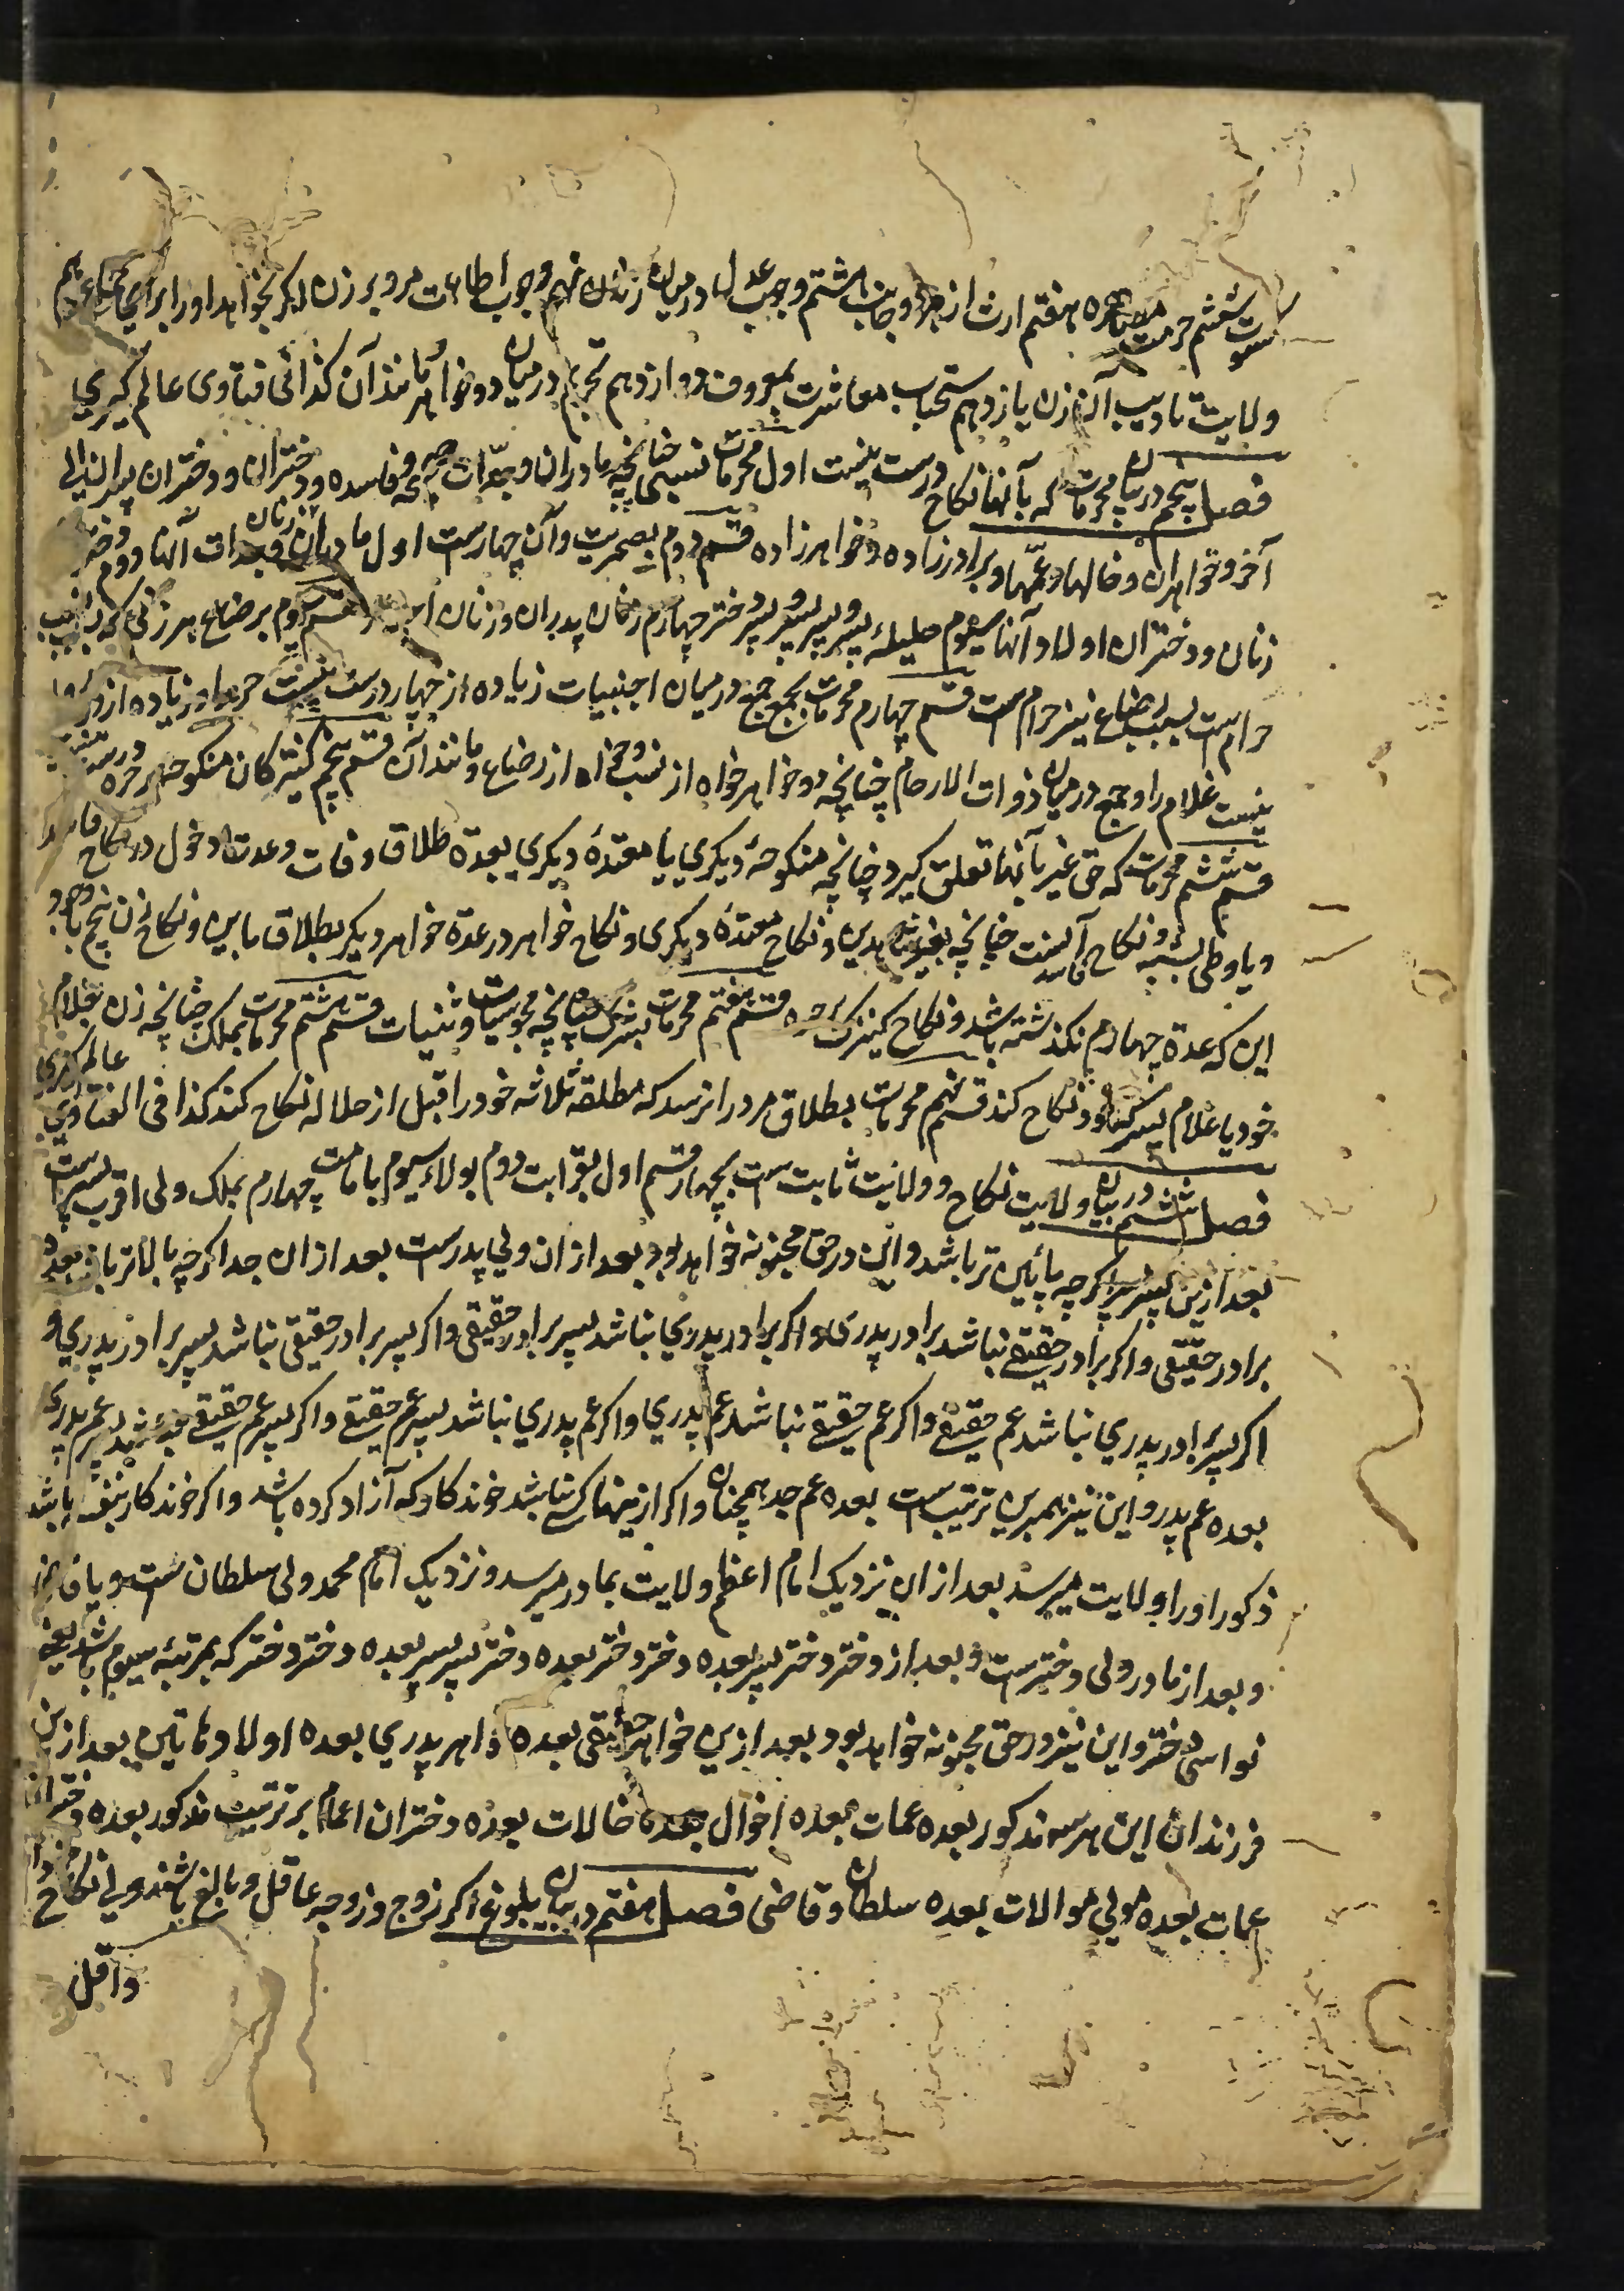 سوت ششم حرمت مصاهره هفتم ارث از هر دو جانب هشتم وجوب عدل درمیان زنان نهم وجوب اطاعت مرد بر زن اکر بخواهد او را برای جماع دهم
ولایت تادیب آن زن یازدهم استحباب معاشرت بمعروف دوازدهم تحریم درمیان دو خواهر و مانند آن کذا فی فتاوی عالم کیری
فصل پنجم در بیان محرمات که بآنها نکاح درست نیست اول محرمات نسبی چنانچه مادران و جدات صحیحه و فاسده و دختران و دختران پسر الی
آخر و خواهران و خالها و عمها و برادرزاده و خواهرزاده قسم دوم بصهریت و آن چهارست اول مادران زنان و جدات آنها دوم دختر
زنان و دختران اولاد آنها سیوم حلیلهٔ پسر و پسر پسر و پسر دختر چهارم زنان پدران و زنان قسم سیوم برضاع هر زنی که بسبب نسب
حرام ست بسبب رضاع نیز حرام ست قسم چهارم محرمات بجمع جمع درمیان اجنبیات زیاده از چهار درست نیست حر را و زیاده از دو
نیست غلام را و جمع درمیان ذوات الارحام چنانچه دو خواهر خواه از نسب و خواه از رضاع و مانند آن قسم پنجم کنیزکان منکوحه بر حره درست نیست
قسم ششم محرمات که حق غیر بآنها تعلق کیرد چنانچه منکوحهٔ دیکری یا معتدهٔ دیکری بعدة طلاق و فات و عدت دخول در نکاح فاسد
و یا وطی بشبه و نکاح فاسد آنست چنانچه بغیر شاهدین و نکاح معتدهٔ دیکری و نکاح خواهر در عدة خواهر دیکر بطلاق باین و نکاح زن پنجم با وجود
این که عدة چهارم نکذشته باشد و نکاح کنیزک بر حره قسم هفتم محرمات بشرک چنانچه مجوسیات و وثنیات قسم هشتم محرمات بملک چنانچه زن بغلام
خود یا غلام پسر خود نکاح کند قسم نهم محرمات بطلاق مرد را نرسد که مطلقه ثلاثه خود را قبل از حلاله نکاح کند کذا فی الفتاوی عالم کیری
فصل ششم در بیان ولایت نکاح و ولایت ثابت ست بچهار قسم اول بقرابت دوم بولاء سیوم بامامت چهارم بملک ولی اقرب پسر ست
بعد ازین پسر پسر اکرچه پائین تر باشد و این در حق مجنونه خواهد بود بعد ازان ولی پدرست بعد ازان جد اکرچه بالاتر باشد بعده
برادر حقیقی و اکر برادر حقیقی نباشد برادر پدری و اکر برادر پدری نباشد پسر برادر حقیقی و اکر پسر برادر حقیقی نباشد پسر برادر پدری و
اکر پسر برادر پدری نباشد عم حقیقی و اکر عم حقیقی نباشد عم پدری و اکر عم پدری نباشد پسر عم حقیقی و اکر پسر عم حقیقی نباشد پسر عم پدری
بعده عم پدر و این نیز بهمبرین ترتیب ست بعده عم جد همچنان و اکر ازینها کسی نباشد خوندکار که آزاد کرده باشد و اکر خوندکار نیز نباشد
ذکور او را ولایت میرسد بعد ازان نزدیک امام اعظم ولایت بمادر میرسد و نزدیک امام محمد ولی سلطان ست و یا قاضی
و بعد از مادر ولی دخترست و بعد از دختر دختر پسر بعده دختر دختر بعده دختر پسر پسر بعده دختر دختر که بمرتبه سیوم باشد یعنی
نواسی دختر و این نیز در حق مجنونه خواهد بود بعد ازین خواهر حقیقی بعده خواهر پدری بعده اولاد مائین بعد ازین
فرزندان این هر سه مذکور بعده عمات بعده اخوال بعده خالات بعده دختران اعمام بر ترتیب مذکور بعده دختران
عمات بعده مولی موالات بعده سلطان و قاضی فصل هفتم در بیان بلوغ اکر زوج و زوجه عاقل و بالغ باشند ولی نکاح
واقل